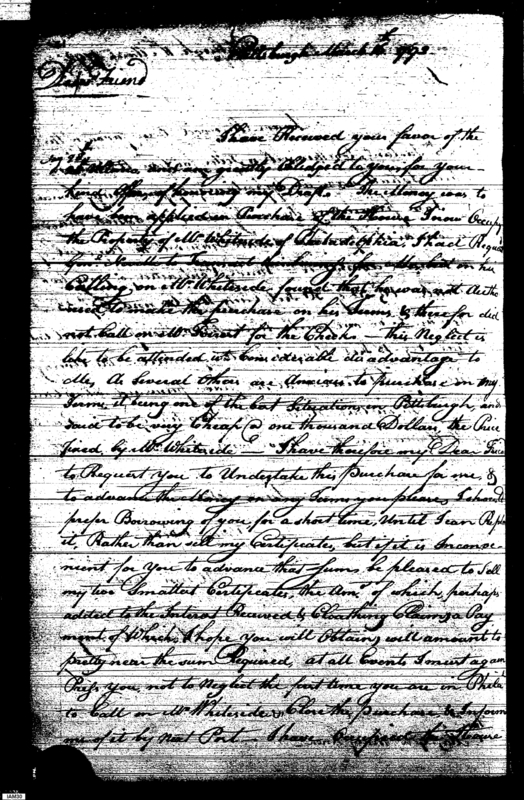 Pittsburgh March 16th 1793
Dear Friend
I have Received your favor of the
and am greatly obliged to you for your
kind offer of my Drafts The Money was to
have been applied in Purchase of the House I now Occupy
the Property of Mr Whiteside of Philadelphia, I had Reques
on his
Calling on Mr Whiteside, found that he was not Autho
rised to make the purchase on his Terms, & therefore did
not Call on Mr for the Checks this Neglect is
like to be attended wt Considerable disadvantage to
Me, As Several Others are Anxious to purchase on my
Terms, it being one of the best Situations in Pittsburgh, and
Said to be very Cheap @ one thousand Dollars, the Price
fixed by Mr Whiteside I have therefore my Dear Friend
to Request you to Undertake this Purchase for me, &
to advance the Money on any Terms you please, I should
prefer Borrowing of you, for a short time, Until I can
it, Rather than sell my Certificates, but if it is Inconve
nient for you to advance that Sum, be pleased to Sell
my two Smallest Certificates, the Amt. of which, perhaps
added to the Interest Received & Cloathing Claims, a Pay
ment of Which, I hope you will Obtain, will amount to
pretty near the sum Required, at all Events I must again
Press you, not to Neglect the first time you are in Phila
to Call on Mr Whiteside & Close the Purchase & Inform
me of it by next Post I have Occupied the House
IAM30